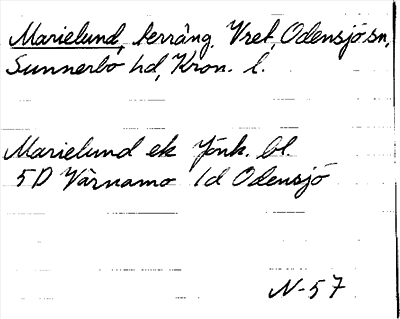 Marielund, terräng, Vret, Odensjö sn,
Sunnerbo hd, Kron. l.
Marielund ek Jönk. bl.
5D Värnamo 1d Odensjö
N-57